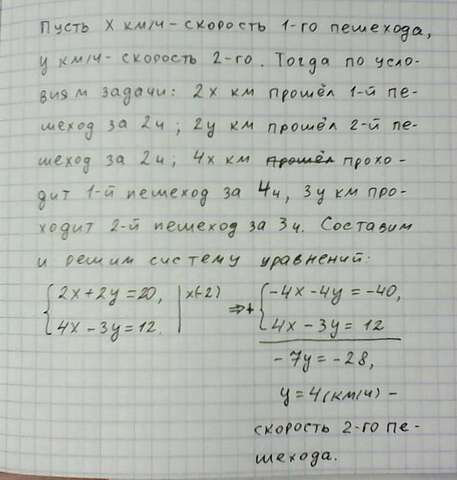 Пусть х км/ч - скорость 1-го пешехода,
у км/ч - скорость 2-го. Тогда по усло-
виям задачи: 2х км прошёл 1-й пе-
шеход за 2ч; 2у км прошёл 2-й пе-
шеход за 2ч; 4х км прошёл прохо-
дит 1-й пешеход за 4ч, 3у км про-
ходит 2-й пешеход за 3ч. Составим
и решим систему уравнений:
{2х+2у=20, |х(-2) ⇒ + {-4х-4у=-40,
{4х-3у=12. | {4х-3у=12
-7у=-28,
у=4(км/ч) -
скорость 2-го пе-
шехода.